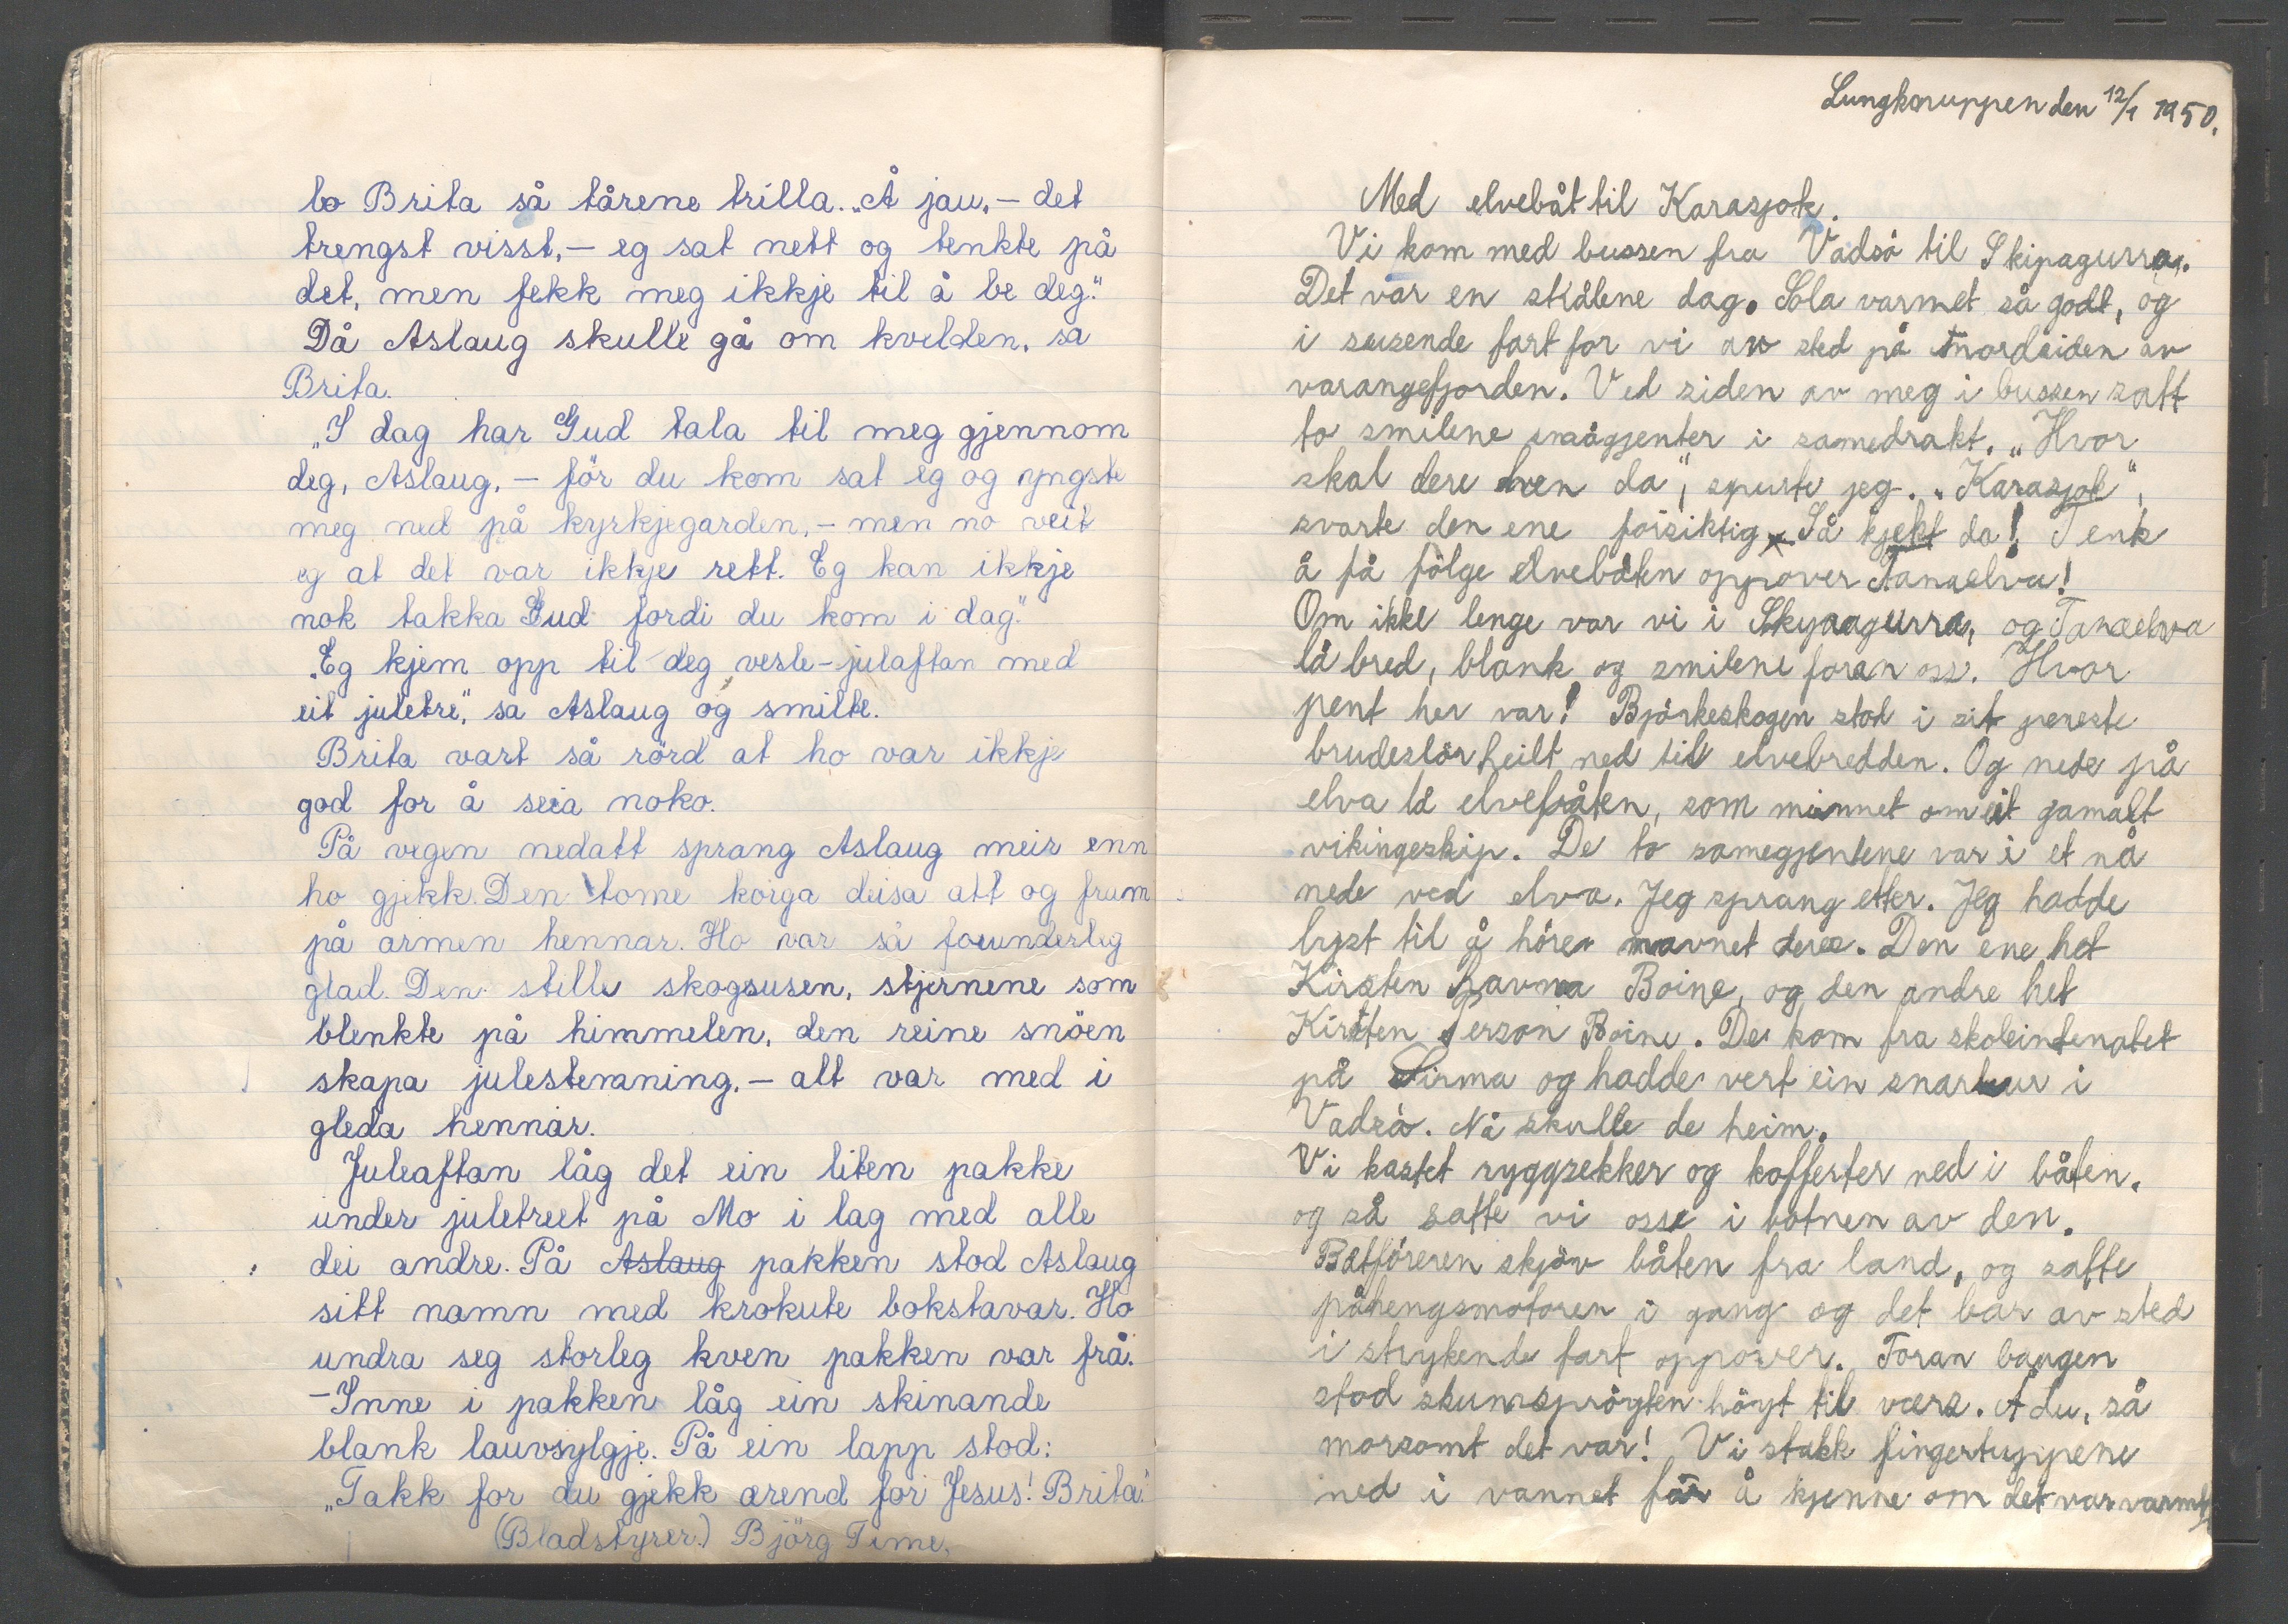 lo Brita så tårene trilla. „Å jau, – det
trengst visst, – eg sat nett og tenkte på
det, men fekk meg ikkje til å be deg."
Då Aslaug skulle gå om kvelden, sa
Brita.
„I dag har Gud tala til meg gjennom
deg, Aslaug, – för du kom sat eg og yngste
meg ned på kyrkjegarden, – men no veit
eg at det var ikkje rett. Eg kan ikkje
nok takka Gud fordi du kom i dag."
„Eg kjem opp til deg vesle-julaftan med
eit juletre", sa Aslaug og smilte.
Brita vart så rörd at ho var ikkje
god for å seia noko.
På vegen nedatt sprang Aslaug meir enn
ho gjekk. Den tome korga deisa att og fram
på armen hennar. Ho var så forunderleg
glad. Den stille skogsusen, stjernene som
blenkte på himmelen, den reine snöen
skapa julestemning, – alt var med i
gleda hennar.
Juleaftan låg det ein liten pakke
under juletreet på Mo i lag med alle
dei andre. På Aslaug pakken stod Aslaug
sitt namn med krokute bokstavar. Ho
undra seg storleg kven pakken var frå.
– Inne i pakken låg ein skinande
blank lauvsylgje. På ein lapp stod:
„Takk for du gjekk ærend for Jesus! Brita."
(Bladstyrer.) Björg Time.
den 12/1 1950.
Med elvebåt til Karasjok.
Vi kom med bussen fra Vadsö til Skipagurra.
Det var en strålene dag. Sola varmet så godt, og
i susende fart for vi av sted på nordsiden av
varangefjorden. Ved siden av meg i bussen satt
to smilene smågjenter i samedrakt. „Hvor
skal dere hen da", spurte jeg. „Karasjok",
svarte den ene forsiktig. Så kjekt da! Tenk
å få fölge elvebåten oppover Tanaelva!
Om ikke lenge var vi i Skipagurra, og Tanaelva
lå bred, blank og smilene foran oss. Hvor
pent her var! Björkeskogen stod i sit peneste
brudeslör heilt ned til elvebredden. Og nede på
elva lå elvebåten, som minnet om eit gamalt
vikingeskip. De to samegjentene var i et nå
nede ved elva. Jeg sprang etter. Jeg hadde
lyst til å höre navnet deres. Den ene het
Kirsten Ravna Boine, og den andre het
Kirsten Person Boine. De kom fra skoleinternatet
på Sirma og hadde vert ein snartur i
Vadsö. Nå skulle de heim.
Vi kastet ryggsekker og kofferter ned i båten,
og så satte vi osse i botnen av den.
Båtföreren skjöv båten fra land, og satte
påhengsmotoren i gang og det bar av sted
i strykende fart oppover. Foran baugen
stod skumspröyten höyt til værs. Å du, så
morsomt det var! Vi stakk fingertuppene
ned i vannet för å kjenne om det var varmt,